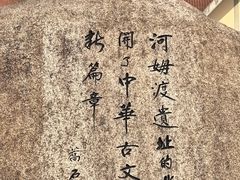 河姆渡遗址的
開了中華古文
新篇章
嵩